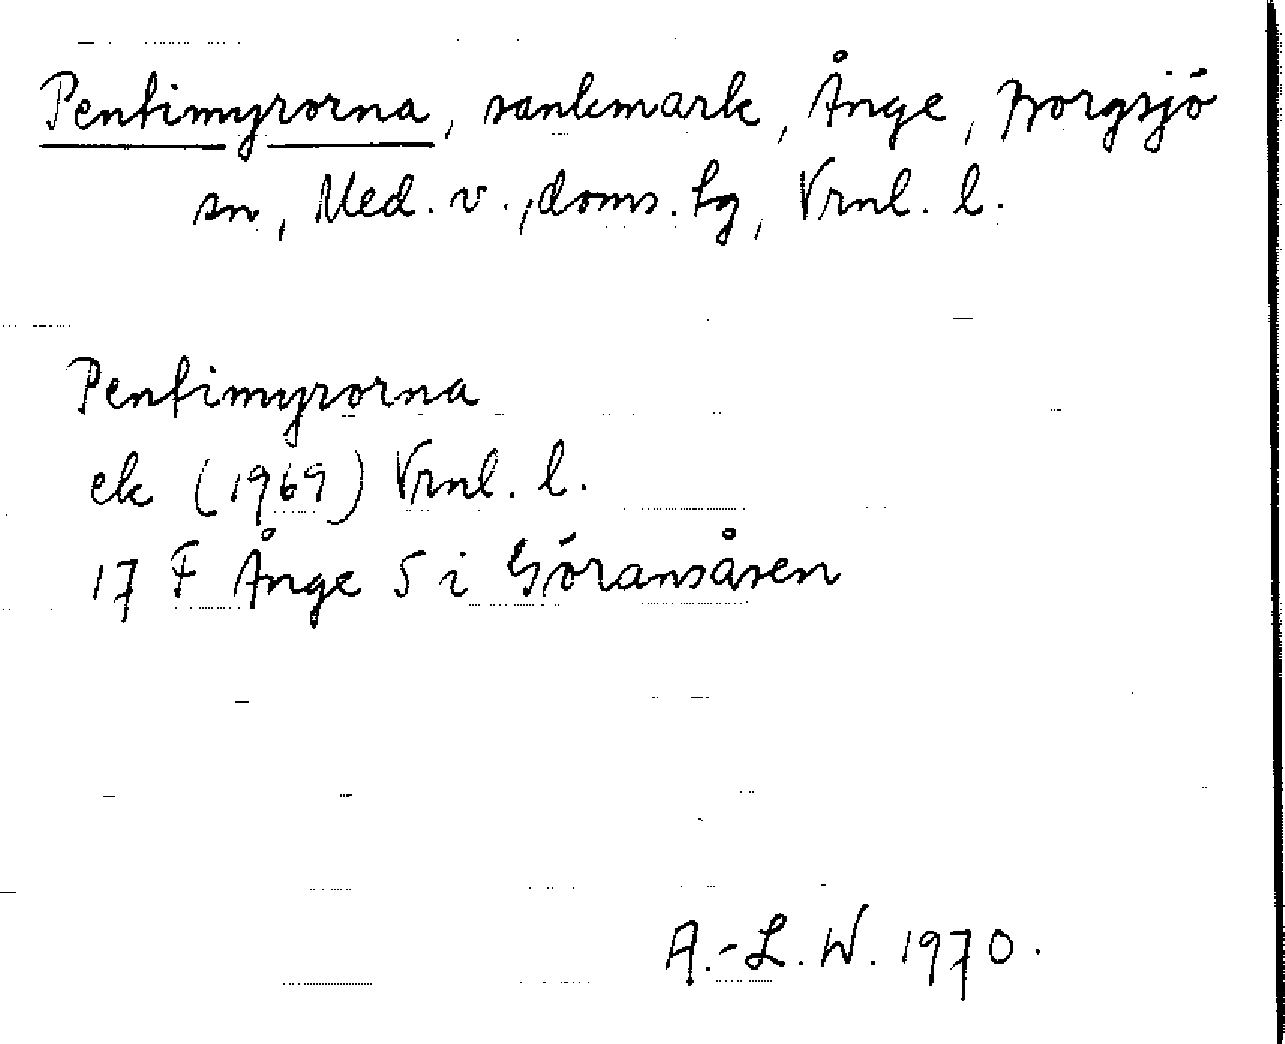 Pentimyrorna, sankmark, Ånge, Borgsjö
sn, Med. v., doms. tg, Vrnl. l.
Pentimyrorna
ek (1969) Vrnl. l.
17 F Ånge 5 i Göransåsen
A.-L. W. 1970.